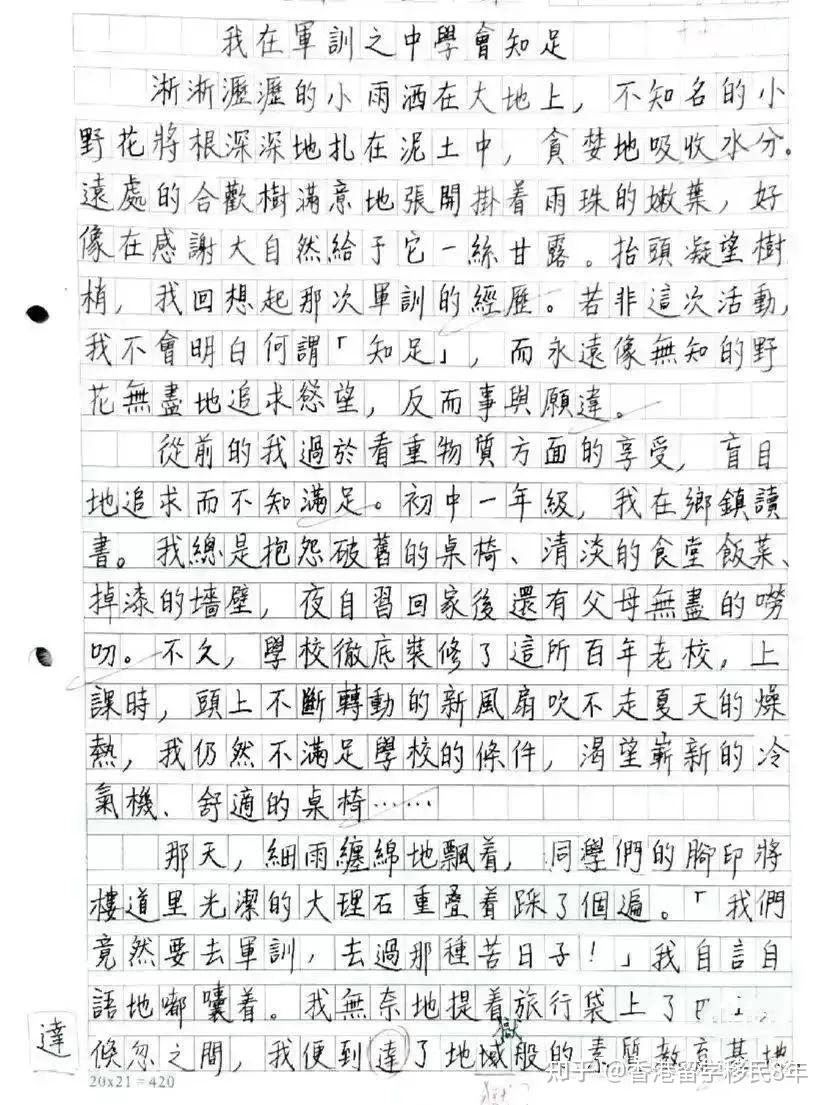 我在軍訓之中學會知足
淅淅瀝瀝的小雨洒在大地上，不知名的小
野花將根深深地扎在泥土中，貪婪地吸收水分。
遠處的合歡樹滿意地張開掛着雨珠的嫩葉，好
像在感謝大自然給于它一絲甘露。抬頭凝望樹
梢，我回想起那次軍訓的經歷。若非這次活動，
我不會明白何謂「知足」，而永遠像無知的野
花無盡地追求慾望，反而事與願違。
從前的我過於看重物質方面的享受，盲目
地追求而不知滿足。初中一年級，我在鄉鎮讀
書。我總是抱怨破舊的桌椅、清淡的食堂飯菜、
掉漆的墻壁，夜自習回家後還有父母無盡的嘮
叨。不久，學校徹底裝修了這所百年老校，上
課時，頭上不斷轉動的新風扇吹不走夏天的燥
熱，我仍然不滿足學校的條件，渴望嶄新的冷
氣機、舒適的桌椅……
那天，細雨纏綿地飄着，同學們的腳印將
樓道里光潔的大理石重疊着踩了個遍。「我們
竟然要去軍訓，去過那種苦日子！」我自言自
語地嘟囔着。我無奈地提着旅行袋上了巴士，
倏忽之間，我便到達了地域般的素質教育基地
獄
達
20x21=420
知乎 @香港留学移民8年